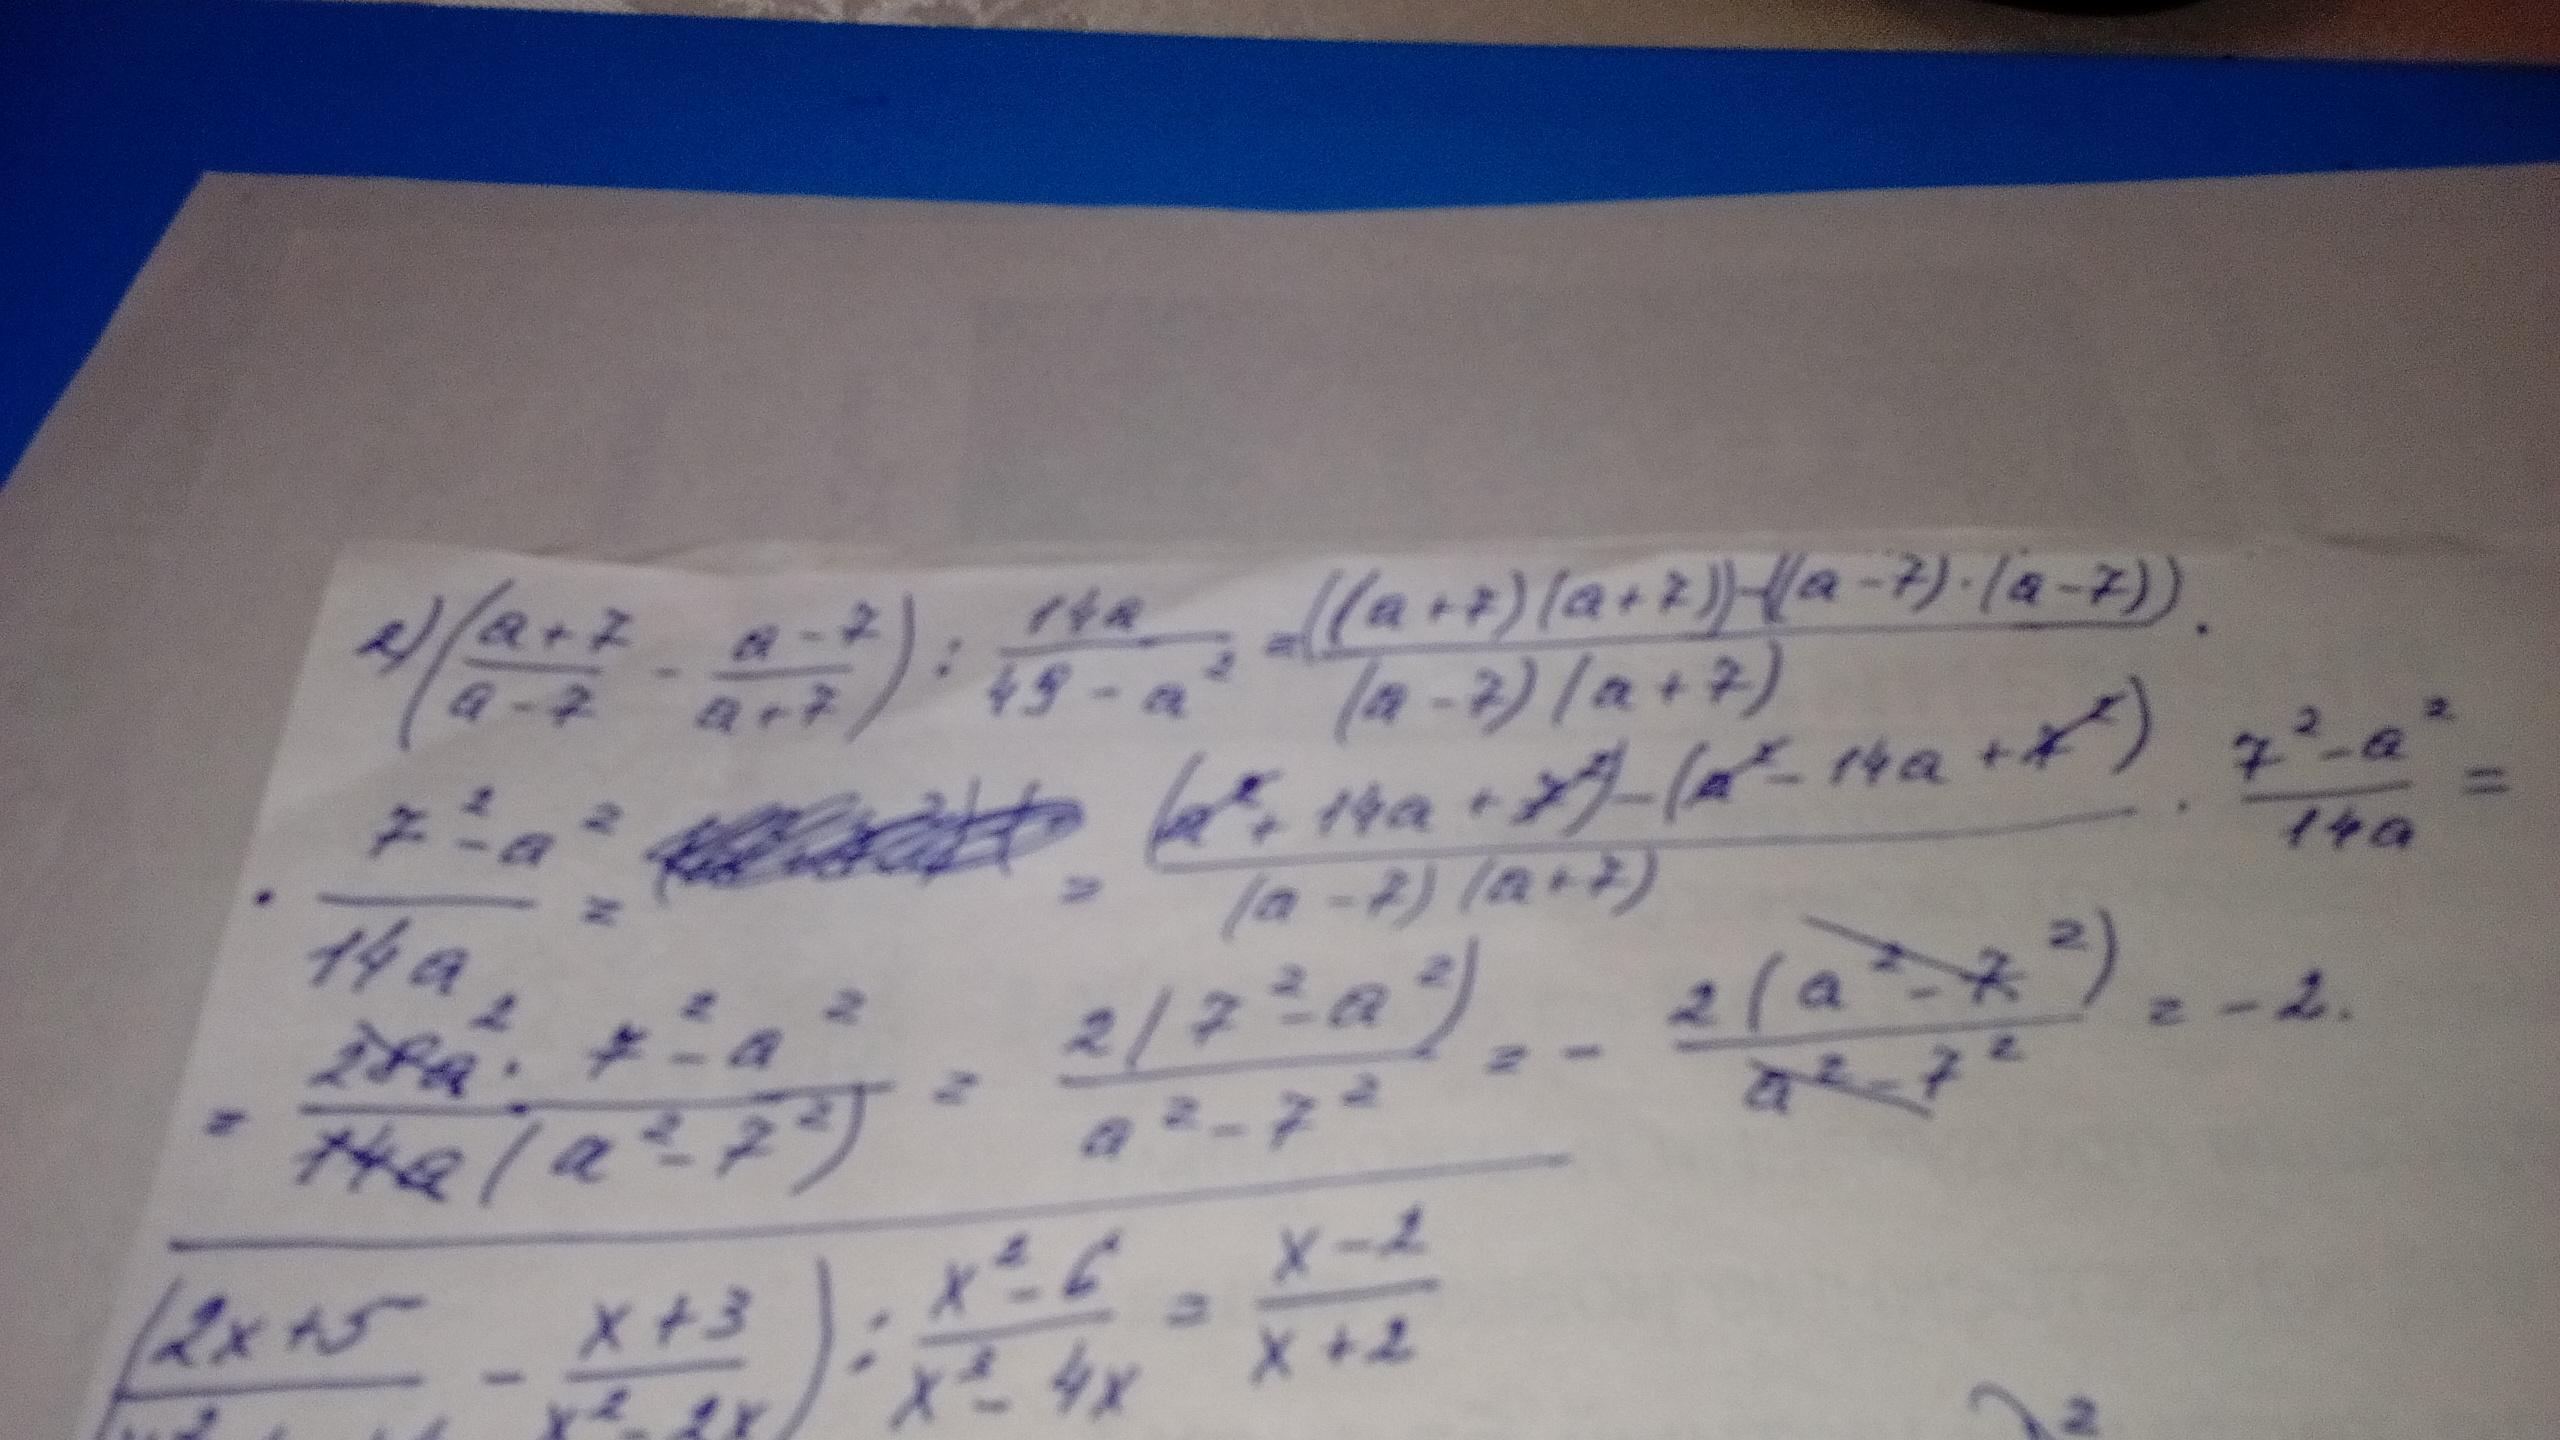 2) ((a+7)/(a-7) - (a-7)/(a+7)) : 14a/(49-a²) = (((a+7)(a+7))-((a-7)·(a-7)))/((a-7)(a+7)) ·
· (7²-a²)/14a = = ((a²+14a+7²)-(a²-14a+7²))/((a-7)(a+7)) · (7²-a²)/14a =
= (28a² · 7²-a²)/(14a(a²-7²)) = 2(7²-a²)/(a²-7²) = - 2(a²-7²)/(a²-7²) = -2.
((2x+5)/ - (x+3)/(x²-2x)) : (x²-6)/(x²-4x) = (x-2)/(x+2)